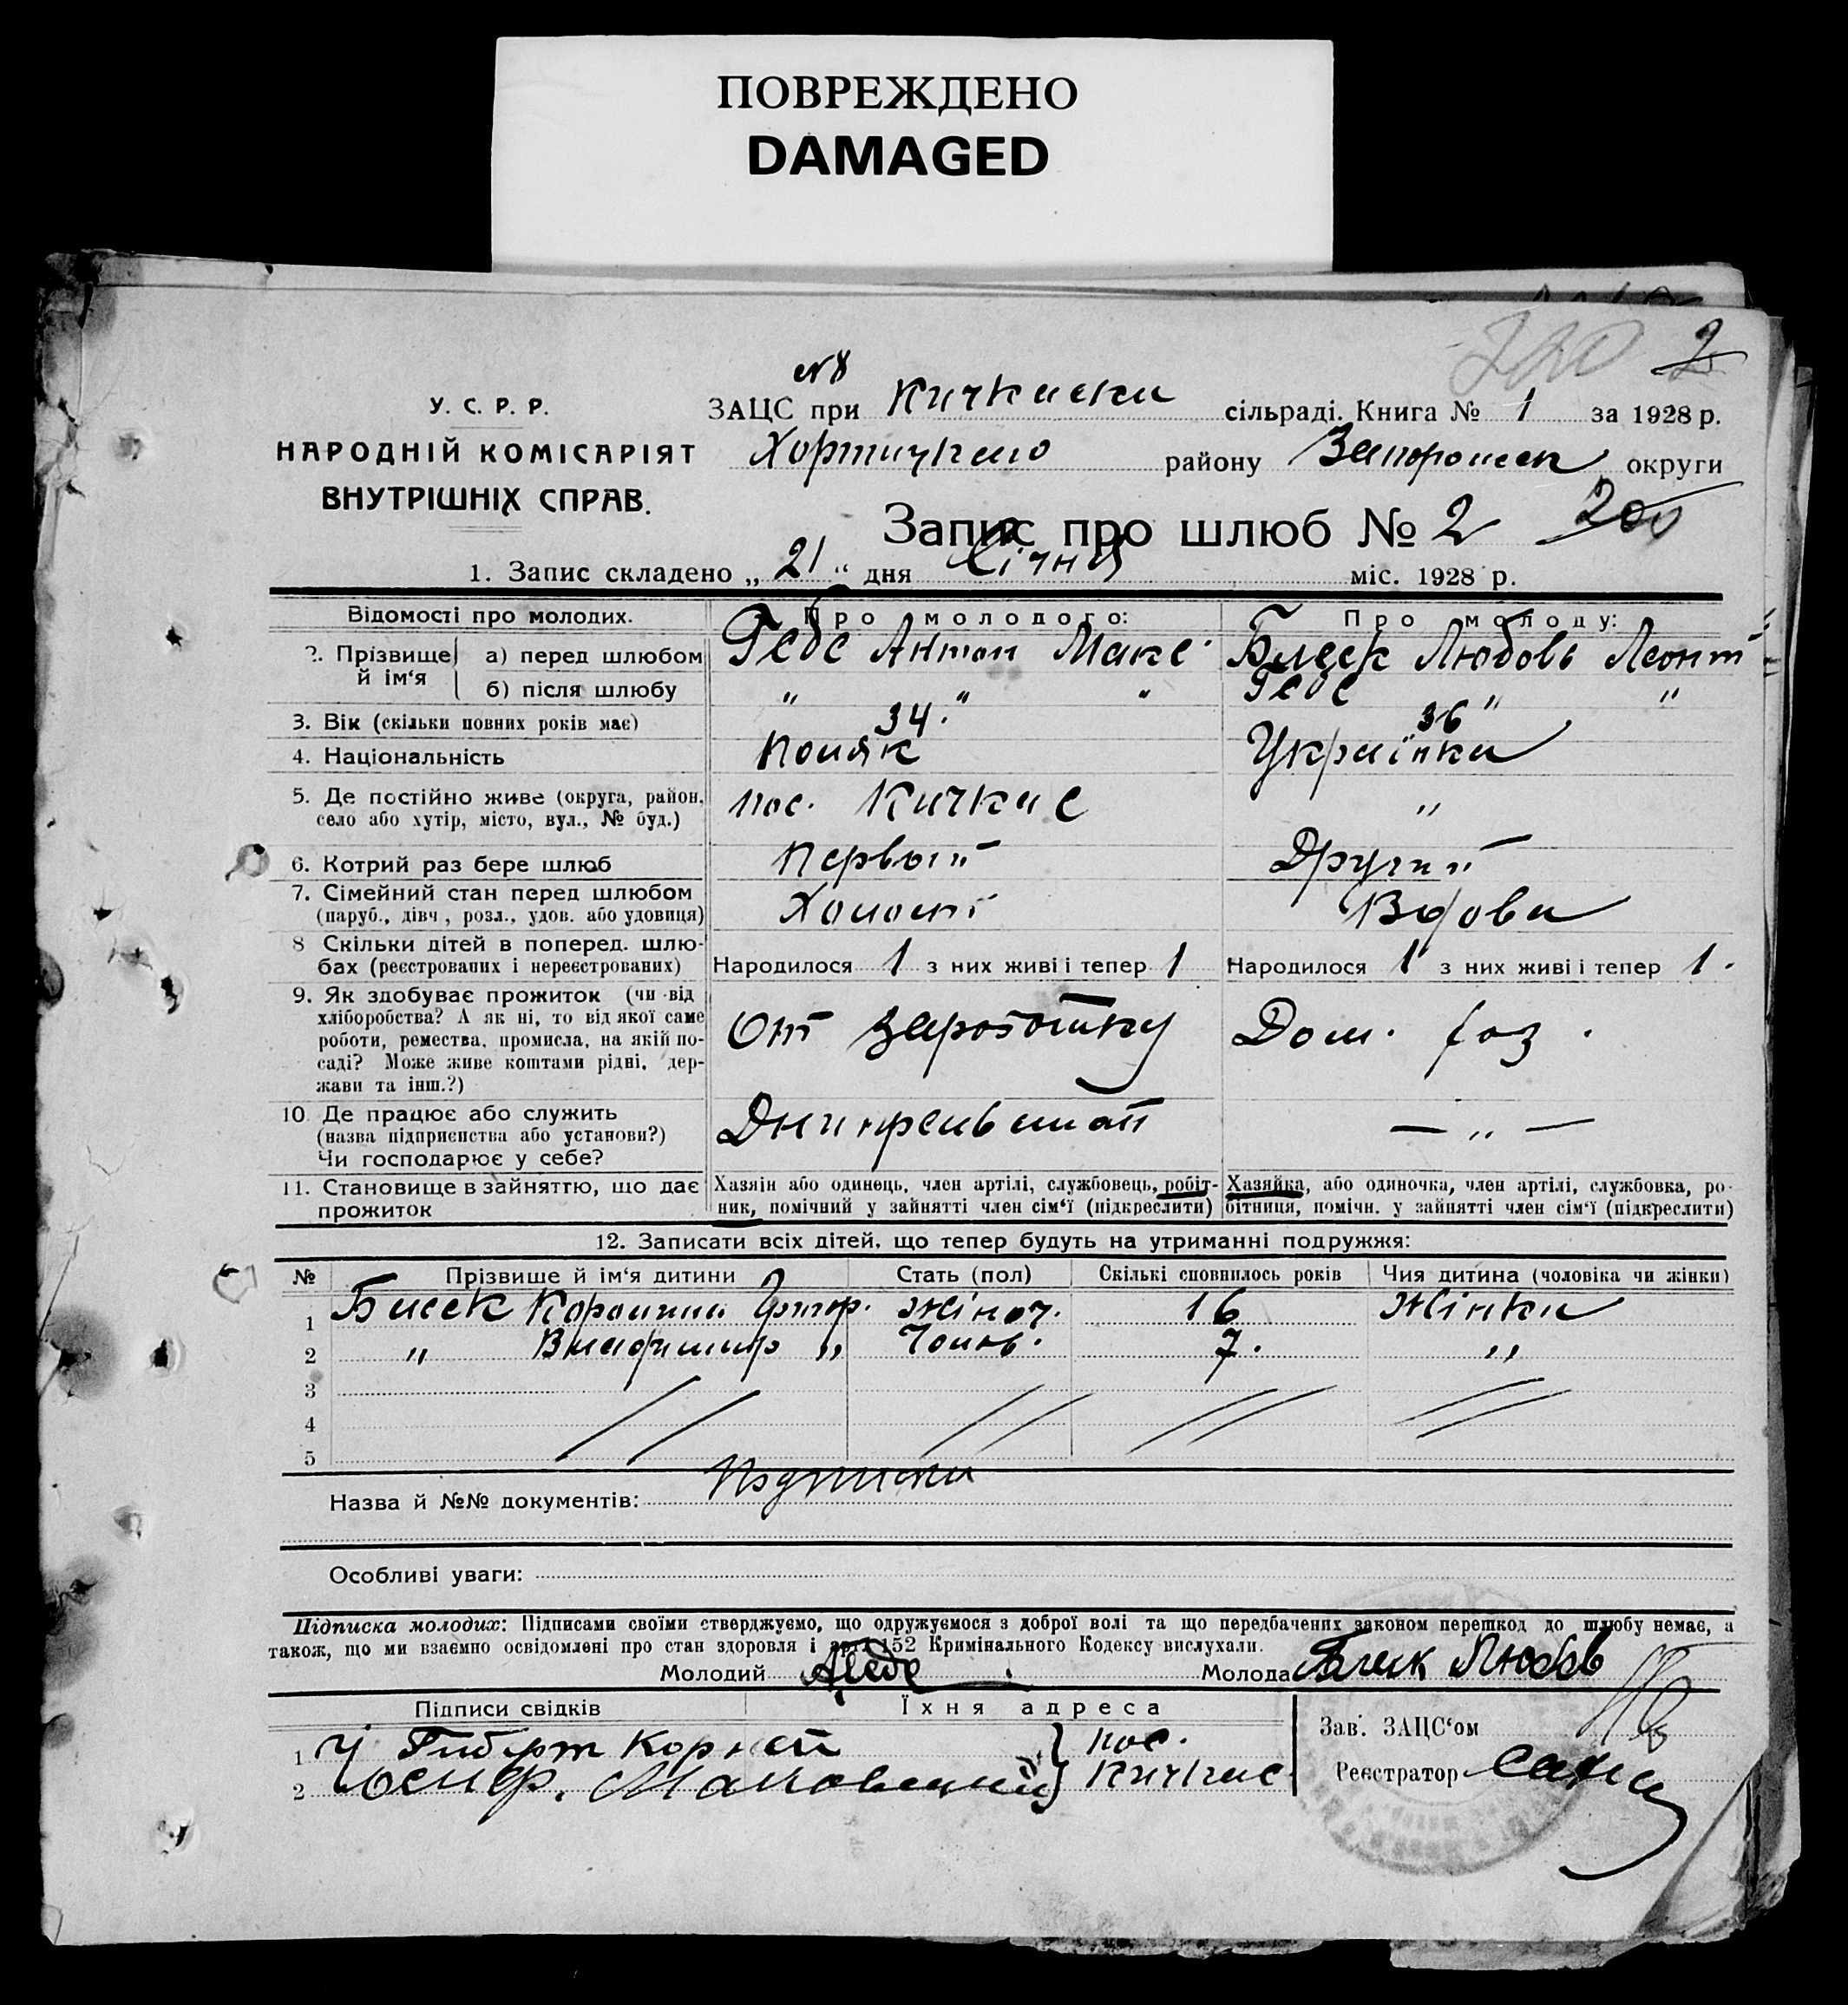 ПОВРЕЖДЕНО
DAMAGED
2
У. С. Р. Р.
НАРОДНІЙ КОМІСАРІЯТ
ВНУТРІШНІХ СПРАВ.
№8
ЗАЦС при Кичкаски сільраді. Книга № 1 за 1928 р.
Хортицкого району Запорошск округи
Запис про шлюб № 2 200
1. Запис складено „ 21 “ дня Січня міс. 1928 р.
Відомості про молодих. Про молодого: Про молоду:
2. Прізвище й ім‘я а) перед шлюбом Геде Антон Макс. Блеск Любовь Леонт
б) після шлюбу " " " Геде " "
3. Вік (скільки повних років має) 34. 36
4. Національність Поляк Українка
5. Де постійно живе (округа, район, пос. Кичкас "
село або хутір, місто, вул., № буд.)
6. Котрий раз бере шлюб Первый Другий
7. Сімейний стан перед шлюбом Холост Вдова
(паруб., дівч., розл., удов. або удовиця)
8 Скільки дітей в поперед. шлю- Народилося 1 з них живі і тепер 1 Народилося 1 з них живі і тепер 1.
бах (реєстрованих і нереєстрованих)
9. Як здобуває прожиток (чи від
хліборобства? А як ні, то від якої саме От заработку Дом. хоз.
роботи, ремества, промисла, на якій по-
саді? Може живе коштами рідні, дер-
жави та інш.?)
10. Де працює або служить
(назва підприємства або установи?) — „ —
Чи господарює у себе?
11. Становище в зайняттю, що дає Хазяїн або одинець, член артілі, службовець, робіт- Хазяйка, або одиночка, член артілі, службовка, ро-
прожиток ник, помічний у зайнятті член сім‘ї (підкреслити) бітниця, помічн. у зайнятті член сім‘ї (підкреслити)
12. Записати всіх дітей, що тепер будуть на утриманні подружжя:
№ Прізвище й ім‘я дитини Стать (пол) Скількі сповнилось років Чия дитина (чоловіка чи жінки)
1 Блеск жіноч. 16 Жінки
2 " Владимир " Чолов. 7. "
3
4
5
Назва й №№ документів: Подписки
Особливі уваги:
Підписка молодих: Підписами своїми стверджуємо, що одружуємося з доброї волі та що передбачених законом перешкод до шлюбу немає, а
також, що ми взаємно освідомлені про стан здоровля і арт. 152 Кримінального Кодексу вислухали.
Молодий АГеде Молода Блеск Любовь
Підписи свідків Їхня адреса
1 Гиберт Корней пос.
2 Кичкас.
Зав. ЗАЦС‘ом
Реєстратор